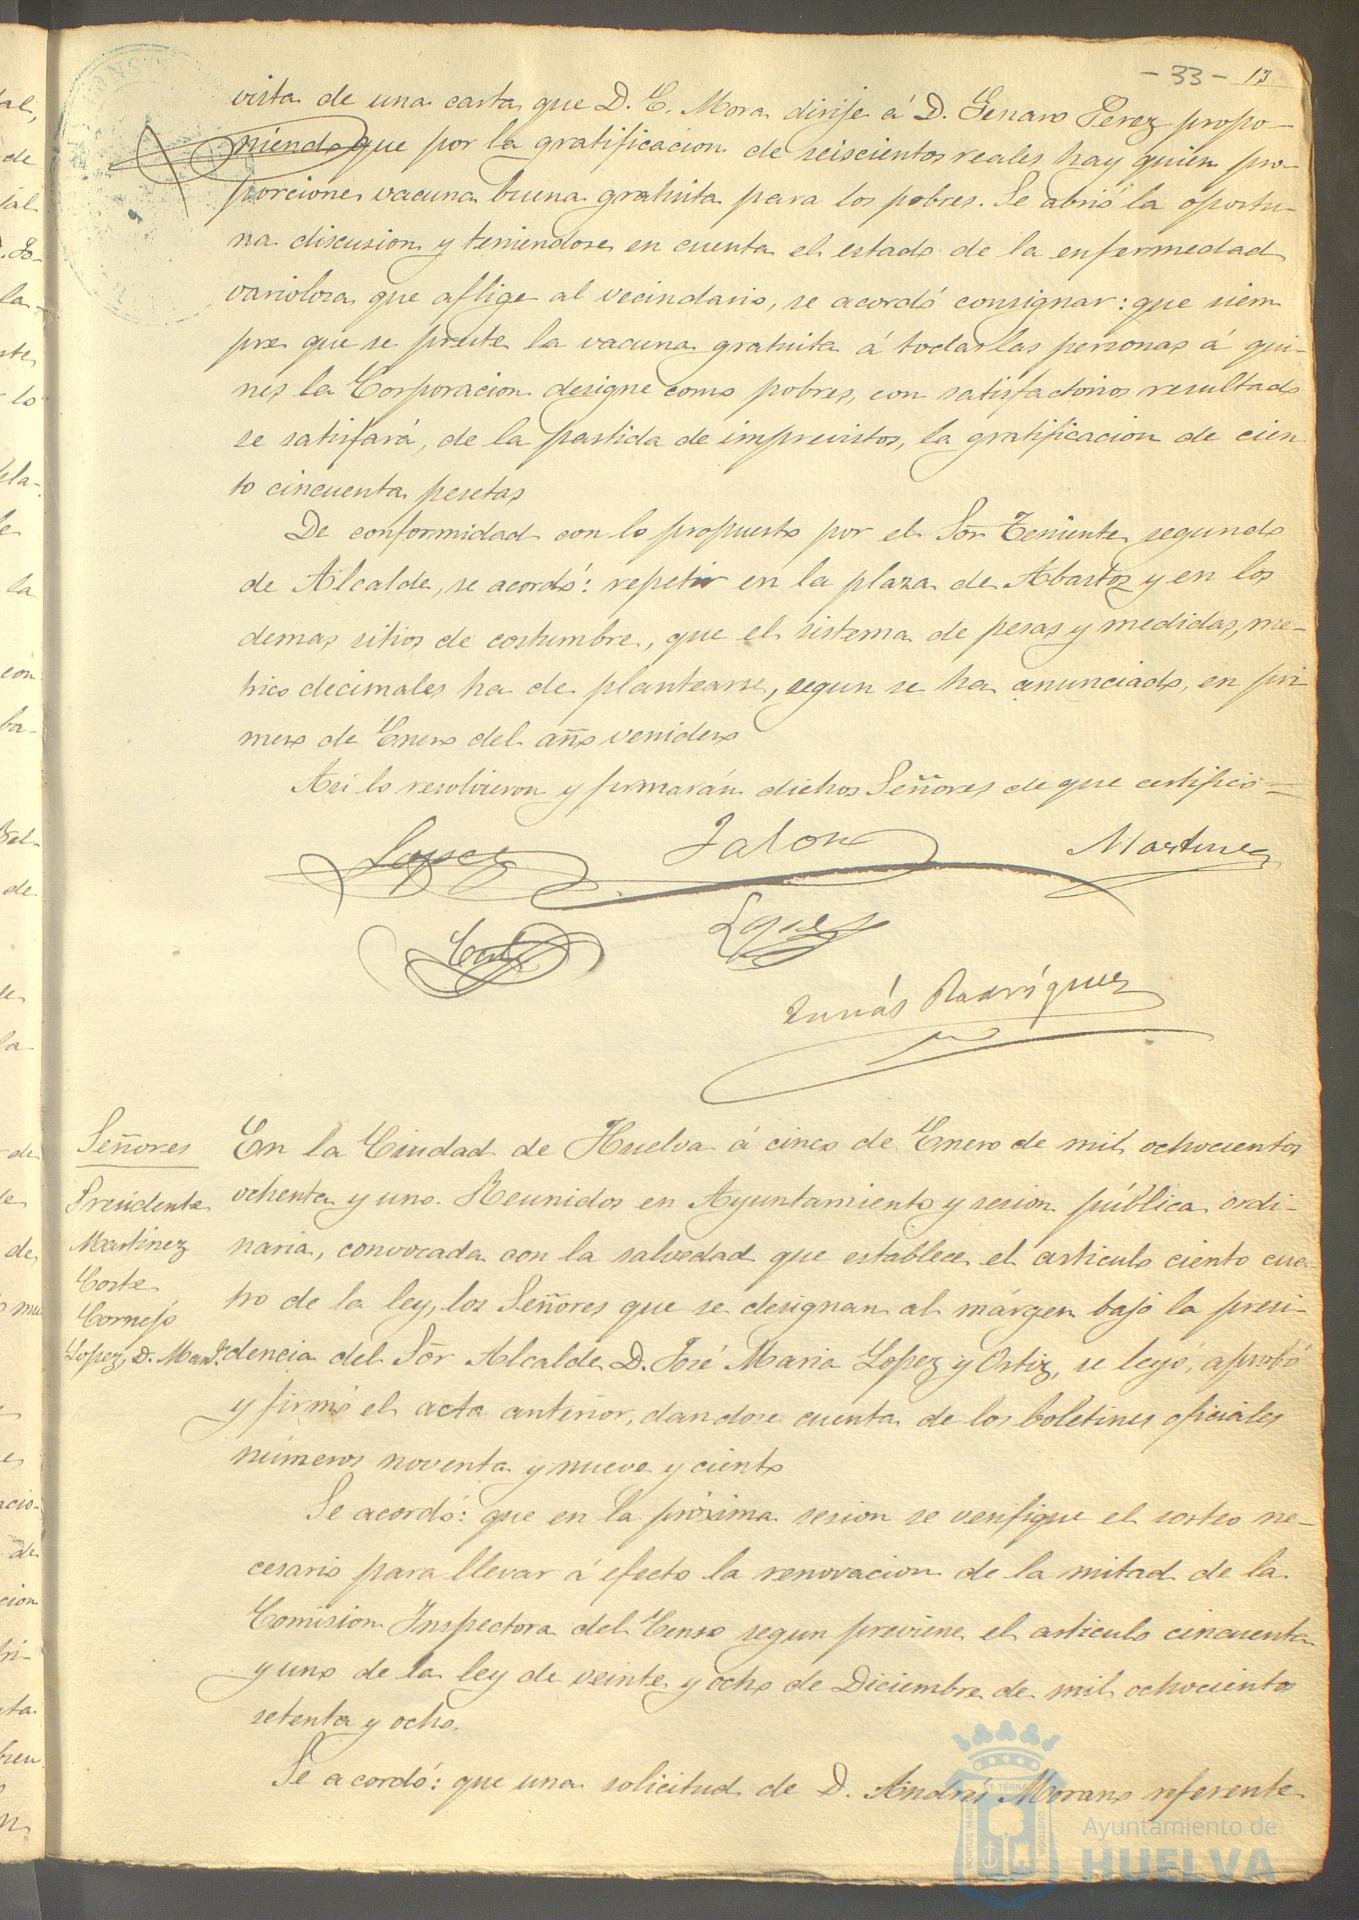 - 33 - 13
vista de una carta que D. E. Mora dirije á D. Genaro Perez propo-
niendo que por la gratificacion de seiscientos reales hay quien pro-
porcione vacuna buena gratuita para los pobres. Se abrió la oportu-
na discusion y teniendose en cuenta el estado de la enfermedad
variolosa que aflige al vecindario, se acordó consignar: que siem
pre que se preste la vacuna gratuita á todas las personas á qui-
nes la Corporacion designe como pobres, con satisfactorios resultado
se satisfará, de la partida de imprevistos, la gratificacion de cien
to cincuenta pesetas
De conformidad con lo propuesto por el Sor Teniente segundo
de Alcalde, se acordó: repetir en la plaza de Abastos y en los
demas sitios de costumbre, que el sistema de pesas y medidas, me-
trico decimales ha de plantearse, segun se ha anunciado, en pri
mero de Enero del año venidero
Asi lo resolvieron y firmarán dichos Señores de que certifico =
Lopez Jalon Martinez
Corte Lopez
Tomás Rodríguez
Señores
Presidente
Martinez
Corte
Cornejo
Lopez, D. Manl.
En la Ciudad de Huelva á cinco de Enero de mil ochocientos
ochenta y uno. Reunidos en Ayuntamiento y sesion pública ordi-
naria, convocada con la salvedad que establece el articulo ciento cua-
tro de la ley, los Señores que se designan al márgen bajo la presi-
dencia del Sor Alcalde D. José Maria Lopez y Ortiz, se leyó, aprobó
y firmó el acta anterior, dandose cuenta de los boletines oficiales
números noventa y nueve y ciento
Se acordó: que en la próxima sesion se verifique el sorteo ne-
cesario para llevar á efecto la renovacion de la mitad de la
Comision Inspectora del Censo segun previene el articulo cincuenta
y uno de la ley de veinte y ocho de Diciembre de mil ochocientos
setenta y ocho.
Se acordó: que una solicitud de D. Andres Morano referente
Ayuntamiento de
HUELVA